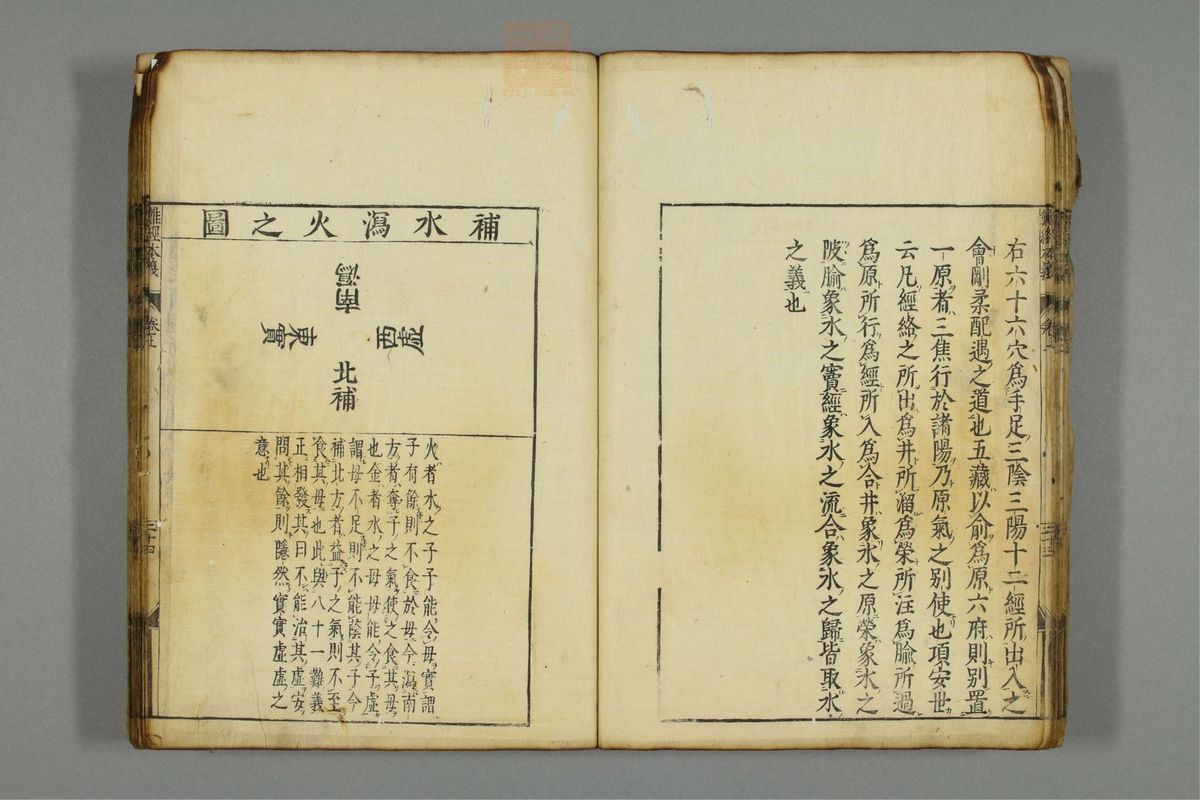 右六十六穴爲手足三陰三陽十二經所出入之
會剛柔配遇之道也五藏以俞爲原六府則別置
一原者三焦行於諸陽乃原氣之別使也項安世
云凡經絡之所出爲井所溜爲滎所注爲腧所過
爲原所行爲經所入爲合井象水之原滎象水之
陂腧象水之竇經象水之流合象水之歸皆取水
之義也
補水瀉火之圖
南瀉
東實
西虛
北補
火者水之子子能令母實謂
子有餘則不食於母今瀉南
方者奪子之氣使之食其母
也金者水之母母能令子虛
謂母不足則不能蔭其子今
補北方者益子之氣則不至
食其母也此與八十一難義
正相發其曰不能治其虛安
問其餘則隱然實實虛虛之
意也
難經本義